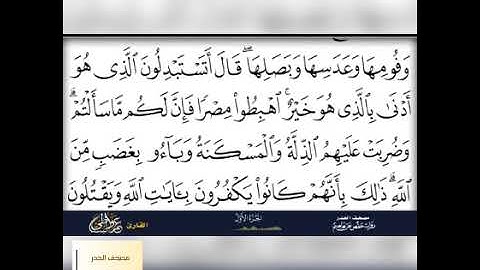 وَفُومِهَا وَعَدَسِهَا وَبَصَلِهَا ۖ قَالَ أَتَسْتَبْدِلُونَ ٱلَّذِى هُوَ
أَدْنَىٰ بِٱلَّذِى هُوَ خَيْرٌ ۚ ٱهْبِطُوا۟ مِصْرًا فَإِنَّ لَكُم مَّا سَأَلْتُمْ ۗ
وَضُرِبَتْ عَلَيْهِمُ ٱلذِّلَّةُ وَٱلْمَسْكَنَةُ وَبَآءُو بِغَضَبٍ مِّنَ
ٱللَّهِ ۗ ذَٰلِكَ بِأَنَّهُمْ كَانُوا۟ يَكْفُرُونَ بِـَٔايَـٰتِ ٱللَّهِ وَيَقْتُلُونَ
مصحف الحدر
الجزء الأول
القارئ
مصحف الحدر